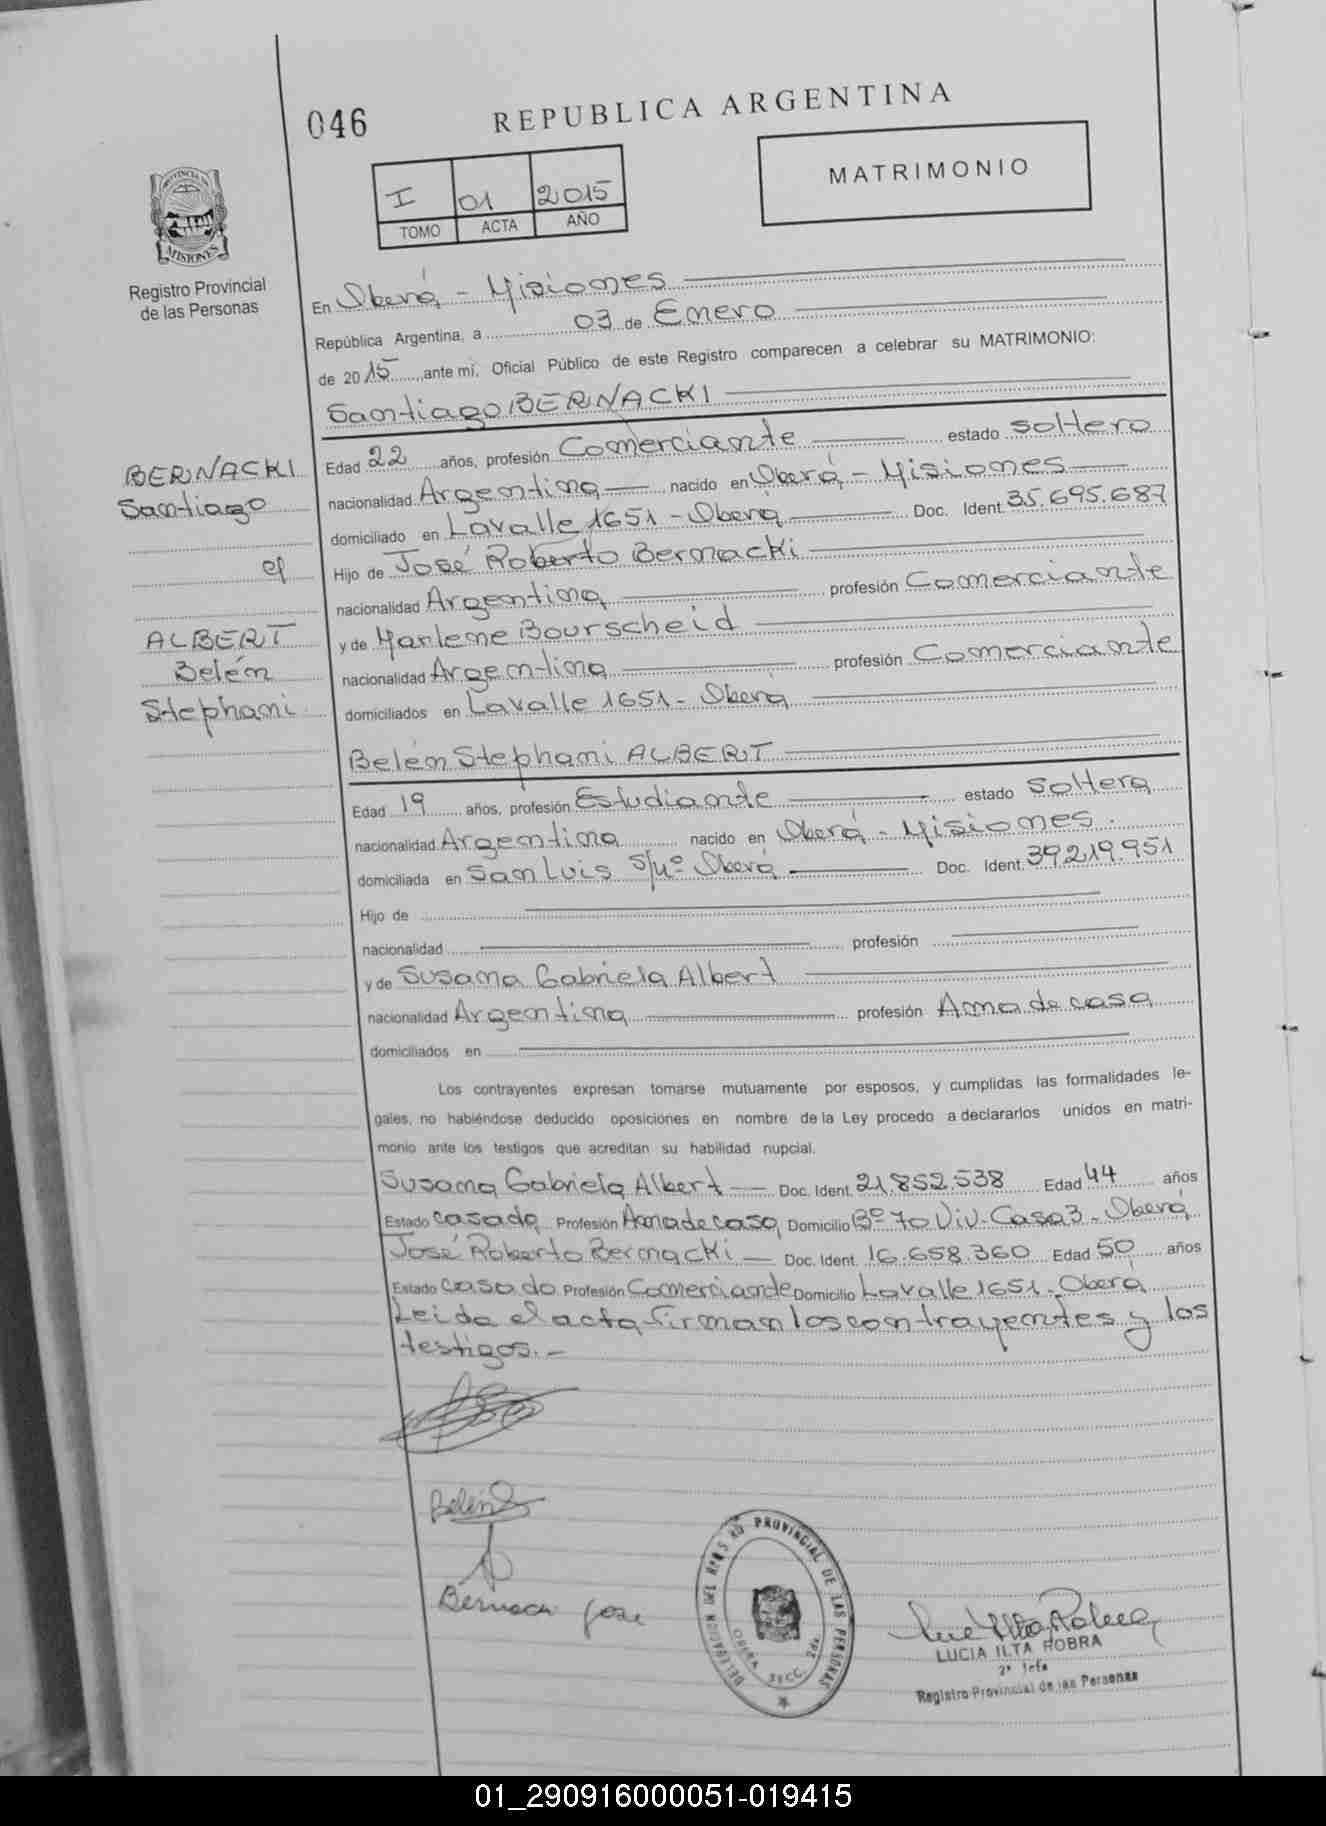 046
REPUBLICA ARGENTINA
MATRIMONIO
I 01 2015
TOMO ACTA AÑO
PROVINCIA DE
MISIONES
Registro Provincial
de las Personas
En Oberá - Misiones
República Argentina, a 03 de Enero
de 2015, ante mi, Oficial Público de este Registro comparecen a celebrar su MATRIMONIO:
Santiago BERNACKI
BERNACKI
Santiago
c/
ALBERT
Belén
Stephani
Edad 22 años, profesión Comerciante estado soltero
nacionalidad Argentina nacido en Oberá - Misiones
domiciliado en Lavalle 1651 - Oberá Doc. Ident. 35.695.687
Hijo de José Roberto Bernacki
nacionalidad Argentina profesión Comerciante
y de Marlene Bourscheid
nacionalidad Argentina profesión Comerciante
domiciliados en Lavalle 1651 - Oberá
Belén Stephani ALBERT
Edad 19 años, profesión Estudiante estado soltera
nacionalidad Argentina nacido en Oberá - Misiones.
domiciliada en San Luis S/Nº Oberá Doc. Ident. 39.219.951
Hijo de
nacionalidad profesión
y de Susana Gabriela Albert
nacionalidad Argentina profesión Ama de casa
domiciliados en
Los contrayentes expresan tomarse mutuamente por esposos, y cumplidas las formalidades le-
gales, no habiéndose deducido oposiciones en nombre de la Ley procedo a declararlos unidos en matri-
monio ante los testigos que acreditan su habilidad nupcial.
Susana Gabriela Albert — Doc. Ident. 21.852.538 Edad 44 años
Estado casada Profesión Ama de casa Domicilio Bº 70 Viv. Casa 3 - Oberá
José Roberto Bernacki — Doc. Ident. 16.658.360 Edad 50 años
Estado casado Profesión Comerciante Domicilio Lavalle 1651 - Oberá
Leida el acta firman los contrayentes y los
testigos. -
Belén
Bernacki Jose
DELEGACION DEL REGISTRO PROVINCIAL DE LAS PERSONAS
OBERA SECC. 2ª
LUCIA ILTA ROBRA
2º Jefe
Registro Provincial de las Personas
01_290916000051-019415